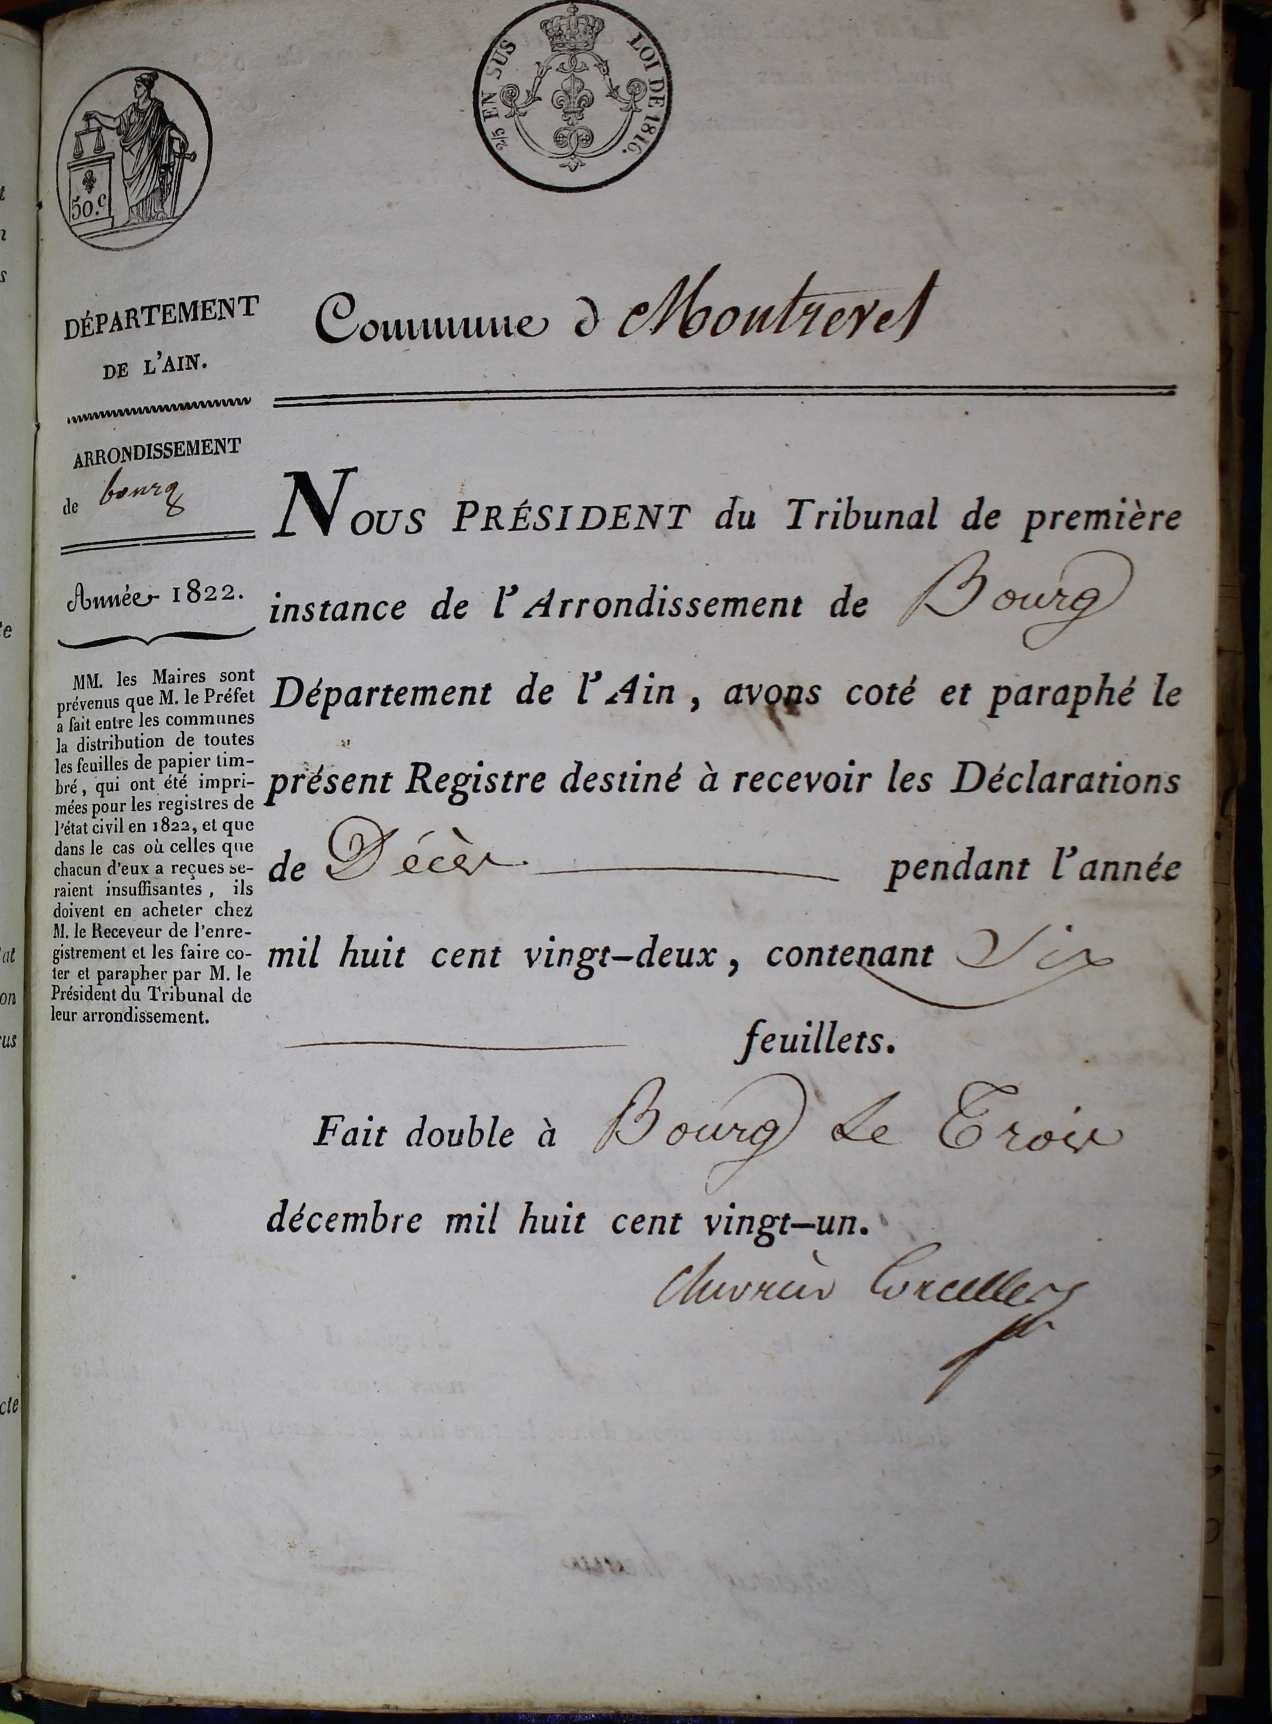 2/5 EN SUS
LOI DE 1816.
50.c
DÉPARTEMENT
DE L'AIN.
ARRONDISSEMENT
de bourg
Année 1822.
MM. les Maires sont
prévenus que M. le Préfet
a fait entre les communes
la distribution de toutes
les feuilles de papier tim-
bré, qui ont été impri-
mées pour les registres de
l'état civil en 1822, et que
dans le cas où celles que
chacun d'eux a reçues se-
raient insuffisantes, ils
doivent en acheter chez
M. le Receveur de l'enre-
gistrement et les faire co-
ter et parapher par M. le
Président du Tribunal de
leur arrondissement.
Commune d Montrevel
NOUS PRÉSIDENT du Tribunal de première
instance de l'Arrondissement de Bourg
Département de l'Ain, avons coté et paraphé le
présent Registre destiné à recevoir les Déclarations
de Décès pendant l'année
mil huit cent vingt-deux, contenant Six
feuillets.
Fait double à Bourg Le Trois
décembre mil huit cent vingt-un.